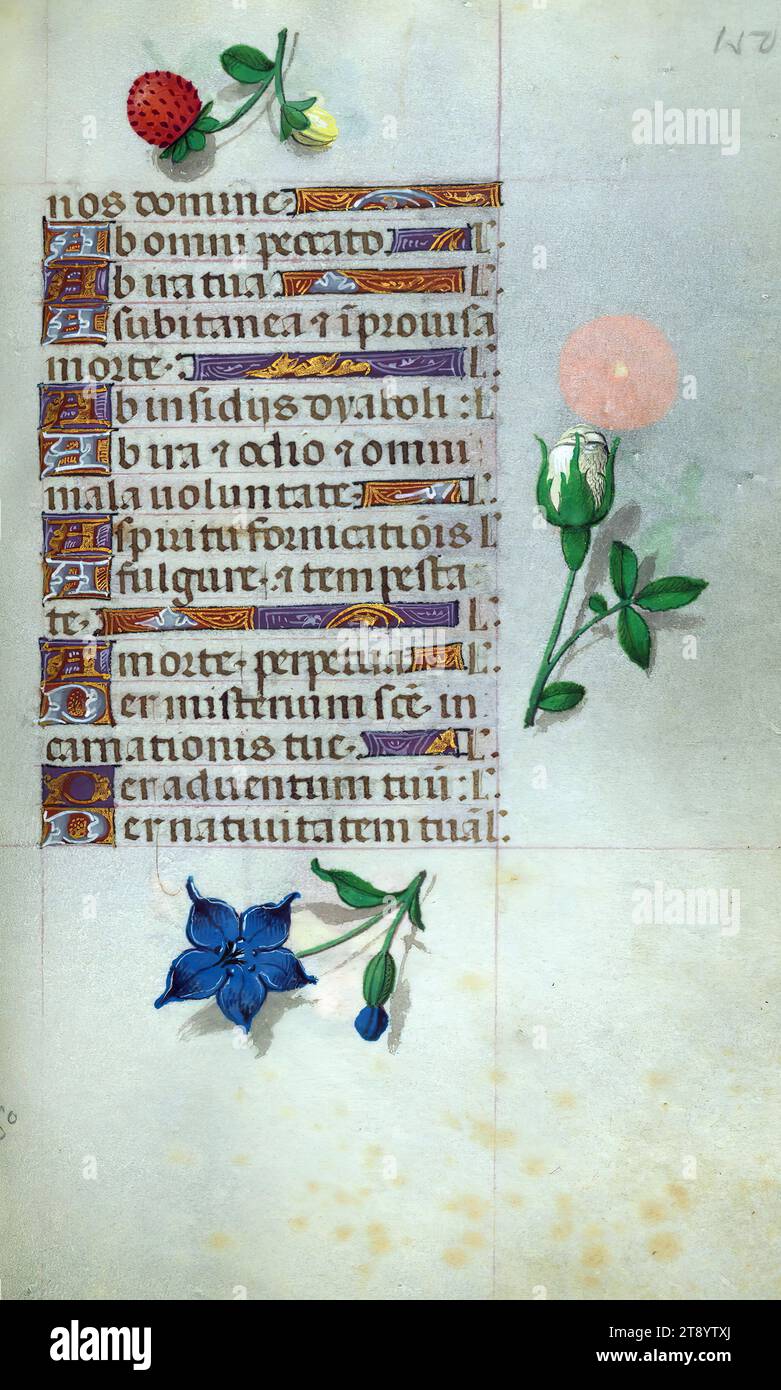 nos domine·
Ab omni peccato L.
Ab ira tua L.
A subitanea ⁊ īprouisa
morte· L.
Ab insidijs dyaboli : L.
Ab ira ⁊ odio ⁊ omni
mala uoluntate· L.
A spiritu fornicatiōis L.
A fulgure· ⁊ tempesta
te· L.
A morte· perpetua L.
Per misterium scē in
carnationis tue· L.
Per aduentum tuū : L.
Per natiuitatem tuā L.
a
alamy
alamy
Image ID: 2T8YTXJ
www.alamy.com